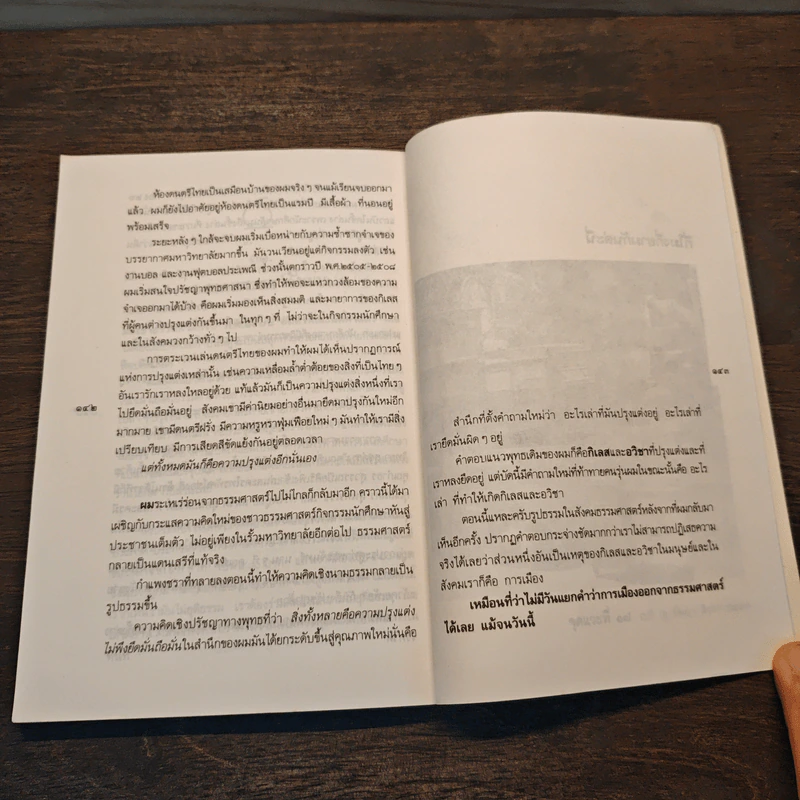 ห้องดนตรีไทยเป็นเสมือนบ้านของผมจริง ๆ จนแม้เรียนจบออกมา
แล้ว ผมก็ยังไปอาศัยอยู่ห้องดนตรีไทยเป็นแรมปี มีเสื้อผ้า ที่นอนอยู่
พร้อมเสร็จ
ระยะหลัง ๆ ใกล้จะจบผมเริ่มเบื่อหน่ายกับความซ้ำซากจำเจของ
บรรยากาศมหาวิทยาลัยมากขึ้น มันวนเวียนอยู่แต่กิจกรรมลงตัว เช่น
งานบอล และงานฟุตบอลประเพณี ช่วงนั้นตกราวปี พ.ศ.๒๕๐๕-๒๕๐๘
ผมเริ่มสนใจปรัชญาพุทธศาสนา ซึ่งทำให้พอจะแหวกวงล้อมของความ
จำเจออกมาได้บ้าง คือผมเริ่มมองเห็นสิ่งสมมติ และมายาการของกิเลส
ที่ผู้คนต่างปรุงแต่งกันขึ้นมา ในทุก ๆ ที่ ไม่ว่าจะในกิจกรรมนักศึกษา
และในสังคมวงกว้างทั่ว ๆ ไป
การตระเวนเล่นดนตรีไทยของผมทำให้ผมได้เห็นปรากฏการณ์
แห่งการปรุงแต่งเหล่านั้น เช่นความเหลื่อมล้ำต่ำต้อยของสิ่งที่เป็นไทย ๆ
อันเรารักเราหลงใหลอยู่ด้วย แท้แล้วมันก็เป็นความปรุงแต่งสิ่งหนึ่งที่เรา
ไปยึดมั่นถือมั่นอยู่ สังคมเขามีค่านิยมอย่างอื่นมายึดมาปรุงกันใหม่อีก
มากมาย เขามีดนตรีฝรั่ง มีความหรูหราฟุ่มเฟือยใหม่ ๆ มันทำให้เรามีสิ่ง
เปรียบเทียบ มีการเสียดสีขัดแย้งกันอยู่ตลอดเวลา
แต่ทั้งหมดมันก็คือความปรุงแต่งอีกนั่นเอง
๑๔๒
ผมระเหเร่ร่อนจากธรรมศาสตร์ไปไม่ไกลก็กลับมาอีก คราวนี้ได้มา
เผชิญกับกระแสความคิดใหม่ของชาวธรรมศาสตร์กิจกรรมนักศึกษาหันสู่
ประชาชนเต็มตัว ไม่อยู่เพียงในรั้วมหาวิทยาลัยอีกต่อไป ธรรมศาสตร์
กลายเป็นแดนเสรีที่แท้จริง
กำแพงชราที่ทลายลงตอนนี้ทำให้ความคิดเชิงนามธรรมกลายเป็น
รูปธรรมขึ้น
ความคิดเชิงปรัชญาทางพุทธที่ว่า สิ่งทั้งหลายคือความปรุงแต่ง
ไม่พึงยึดมั่นถือมั่นในสำนึกของผมมันได้ยกระดับขึ้นสู่คุณภาพใหม่นั่นคือ
๑๔๓
สำนึกที่ตั้งคำถามใหม่ว่า อะไรเล่าที่มันปรุงแต่งอยู่ อะไรเล่าที่
เรายึดมันผิด ๆ อยู่
คำตอบแนวพุทธเดิมของผมก็คือกิเลสและอวิชาที่ปรุงแต่งและที่
เราหลงยึดอยู่ แต่บัดนี้มีคำถามใหม่ที่ท้าทายคนรุ่นผมในขณะนั้นคือ อะไร
เล่า ที่ทำให้เกิดกิเลสและอวิชา
ตอนนี้แหละครับรูปธรรมในสังคมธรรมศาสตร์หลังจากที่ผมกลับมา
เห็นอีกครั้ง ปรากฏคำตอบกระจ่างชัดมากกว่าเราไม่สามารถปฏิเสธความ
จริงได้เลยว่าส่วนหนึ่งอันเป็นเหตุของกิเลสและอวิชาในมนุษย์และใน
สังคมเราก็คือ การเมือง
เหมือนที่ว่าไม่มีวันแยกคำว่าการเมืองออกจากธรรมศาสตร์
ได้เลย แม้จนวันนี้